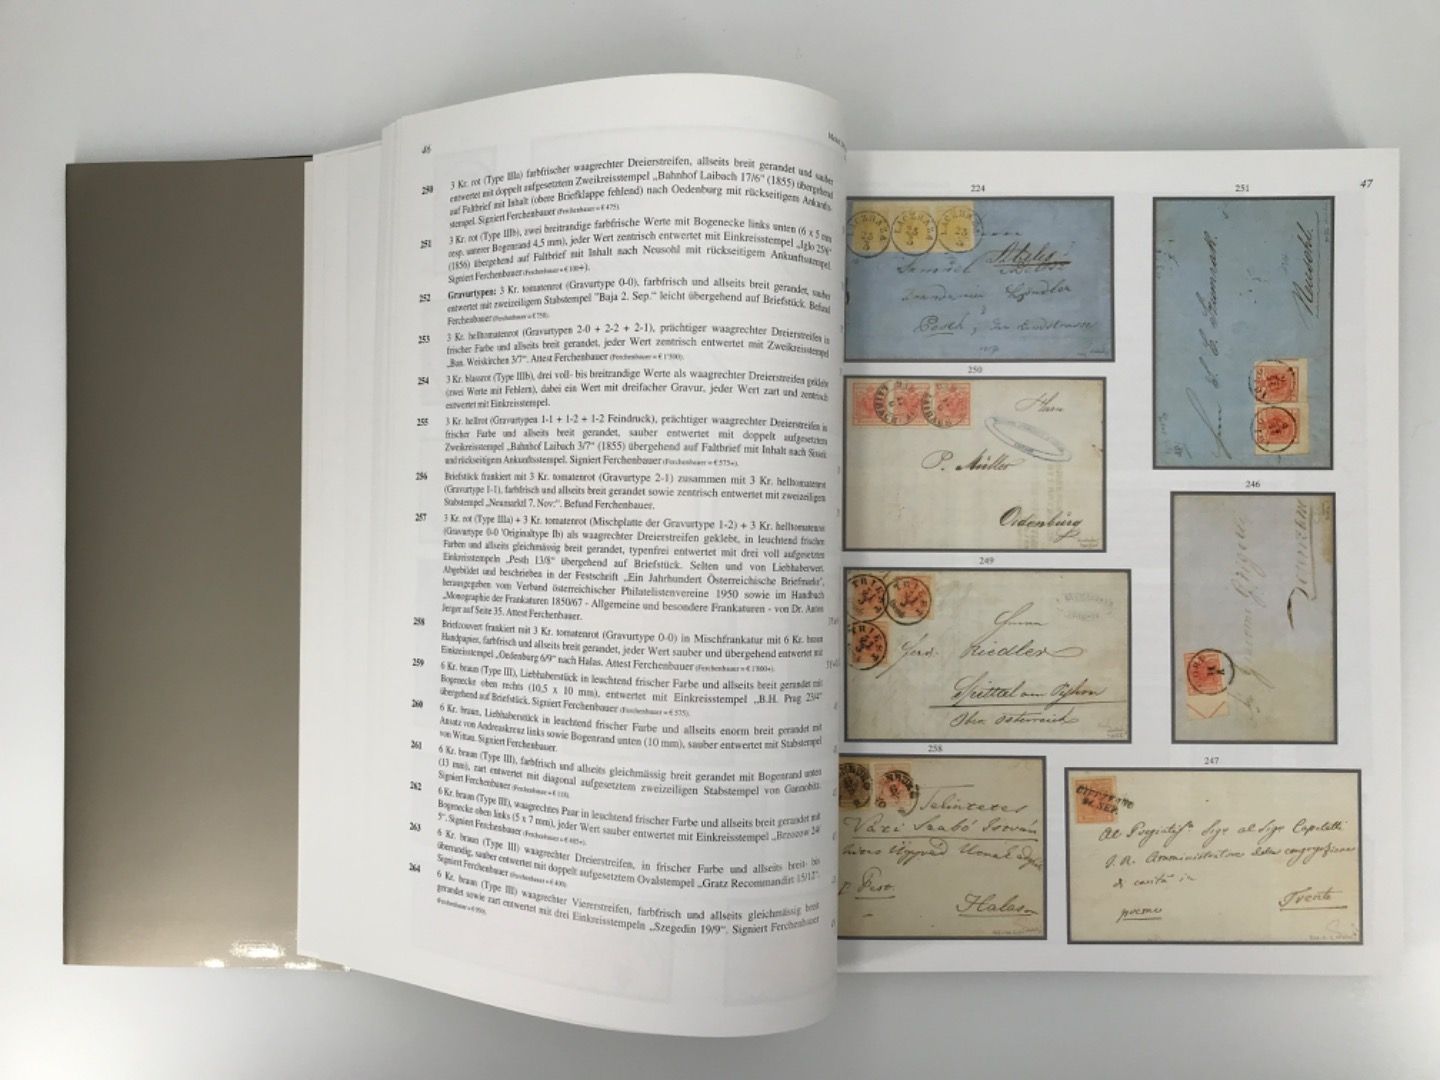 46
250 3 Kr. rot (Type IIIa) farbfrischer waagrechter Dreierstreifen, allseits breit gerandet und sauber
entwertet mit doppelt aufgesetztem Zweikreisstempel „Bahnhof Laibach 17/6" (1855) übergehend
auf Faltbrief mit Inhalt (obere Briefklappe fehlend) nach Oedenburg mit rückseitigem Ankunfts-
stempel. Signiert Ferchenbauer (Ferchenbauer = € 475).
251 3 Kr. rot (Type IIIb), zwei breitrandige farbfrische Werte mit Bogenecke links unten (6 x 5 mm
resp. unterer Bogenrand 4,5 mm), jeder Wert zentrisch entwertet mit Einkreisstempel „Iglo 25/6"
(1856) übergehend auf Faltbrief mit Inhalt nach Neusohl mit rückseitigem Ankunftsstempel.
Signiert Ferchenbauer (Ferchenbauer = € 100+).
252 Gravurtypen: 3 Kr. tomatenrot (Gravurtype 0-0), farbfrisch und allseits breit gerandet, sauber
entwertet mit zweizeiligem Stabstempel "Baja 2. Sep." leicht übergehend auf Briefstück. Befund
Ferchenbauer (Ferchenbauer = € 750).
253 3 Kr. helltomatenrot (Gravurtypen 2-0 + 2-2 + 2-1), prächtiger waagrechter Dreierstreifen in
frischer Farbe und allseits breit gerandet, jeder Wert zentrisch entwertet mit Zweikreisstempel
„Ban. Weiskirchen 3/7". Attest Ferchenbauer (Ferchenbauer = € 1'500).
254 3 Kr. blassrot (Type IIIb), drei voll- bis breitrandige Werte als waagrechter Dreierstreifen geklebt
(zwei Werte mit Fehlern), dabei ein Wert mit dreifacher Gravur, jeder Wert zart und zentrisch
entwertet mit Einkreisstempel.
255 3 Kr. hellrot (Gravurtypen 1-1 + 1-2 + 1-2 Feindruck), prächtiger waagrechter Dreierstreifen in
frischer Farbe und allseits breit gerandet, sauber entwertet mit doppelt aufgesetztem
Zweikreisstempel „Bahnhof Laibach 3/7" (1855) übergehend auf Faltbrief mit Inhalt nach Sissek
und rückseitigem Ankunftsstempel. Signiert Ferchenbauer (Ferchenbauer = € 575+).
256 Briefstück frankiert mit 3 Kr. tomatenrot (Gravurtype 2-1) zusammen mit 3 Kr. helltomatenrot
(Gravurtype 1-1), farbfrisch und allseits breit gerandet sowie zentrisch entwertet mit zweizeiligen
Stabstempel „Neumarktl 7. Nov:". Befund Ferchenbauer.
257 3 Kr. rot (Type IIIa) + 3 Kr. tomatenrot (Mischplatte der Gravurtype 1-2) + 3 Kr. helltomatenrot
(Gravurtype 0-0 'Originaltype Ib) als waagrechter Dreierstreifen geklebt, in leuchtend frischen
Farben und allseits gleichmässig breit gerandet, typenfrei entwertet mit drei voll aufgesetzten
Einkreisstempeln „Pesth 13/8" übergehend auf Briefstück. Selten und von Liebhaberwert.
Abgebildet und beschrieben in der Festschrift „Ein Jahrhundert Österreichische Briefmarke",
herausgegeben vom Verband österreichischer Philatelistenvereine 1950 sowie im Handbuch
„Monographie der Frankaturen 1850/67 - Allgemeine und besondere Frankaturen - von Dr. Anton
Jerger auf Seite 35. Attest Ferchenbauer.
258 Briefcouvert frankiert mit 3 Kr. tomatenrot (Gravurtype 0-0) in Mischfrankatur mit 6 Kr. braun
Handpapier, farbfrisch und allseits breit gerandet, jeder Wert sauber und übergehend entwertet mit
Einkreisstempel „Oedenburg 6/9" nach Halas. Attest Ferchenbauer (Ferchenbauer = € 1'800+).
259 6 Kr. braun (Type III), Liebhaberstück in leuchtend frischer Farbe und allseits breit gerandet mit
Bogenecke oben rechts (10,5 x 10 mm), entwertet mit Einkreisstempel „B.H. Prag 23/4"
übergehend auf Briefstück. Signiert Ferchenbauer (Ferchenbauer = € 575).
260 6 Kr. braun, Liebhaberstück in leuchtend frischer Farbe und allseits enorm breit gerandet mit
Ansatz von Andreaskreuz links sowie Bogenrand unten (10 mm), sauber entwertet mit Stabstempel
von Wittau. Signiert Ferchenbauer.
261 6 Kr. braun (Type III), farbfrisch und allseits gleichmässig breit gerandet mit Bogenrand unten
(13 mm), zart entwertet mit diagonal aufgesetztem zweizeiligen Stabstempel von Gaunobitz.
Signiert Ferchenbauer
262 6 Kr. braun (Type III), waagrechtes Paar in leuchtend frischer Farbe und allseits breit gerandet mit
Bogenecke oben links (5 x 7 mm), jeder Wert sauber entwertet mit Einkreisstempel „Brzozow 24/
5". Signiert Ferchenbauer
263 6 Kr. braun (Type III) waagrechter Dreierstreifen, in frischer Farbe und allseits breit- bis
überrandig, sauber entwertet mit doppelt aufgesetztem Ovalstempel „Gratz Recommandirt 15/12".
Signiert Ferchenbauer (Ferchenbauer = € 400).
264 6 Kr. braun (Type III) waagrechter Viererstreifen, farbfrisch und allseits gleichmässig breit
gerandet sowie zart entwertet mit drei Einkreisstempeln „Szegedin 19/9". Signiert Ferchenbauer
47
224
LACZHAZA
23
Samuel
Pesth
251
Neusohl
250
Herrn
P. Müller
Oedenburg
246
249
TRIEST
Herrn
Ferd. Riedler
Spittal am Pyhrn
Ober Österreich
258
Tekintetes
Vári Szabó István
Halas
247
14 SET.
di carità in
Trento